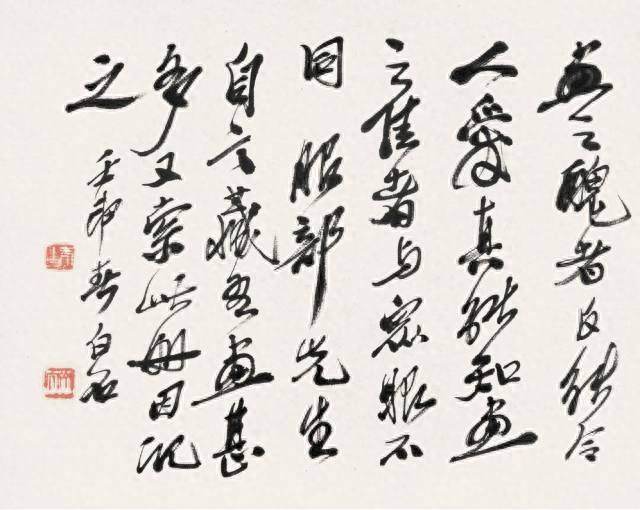 畫之醜者反能令
人愛真能知畫
之佳者与众眼不
同服部先生
自言藏吾畫甚
多又索此册因記
之
壬申春白石